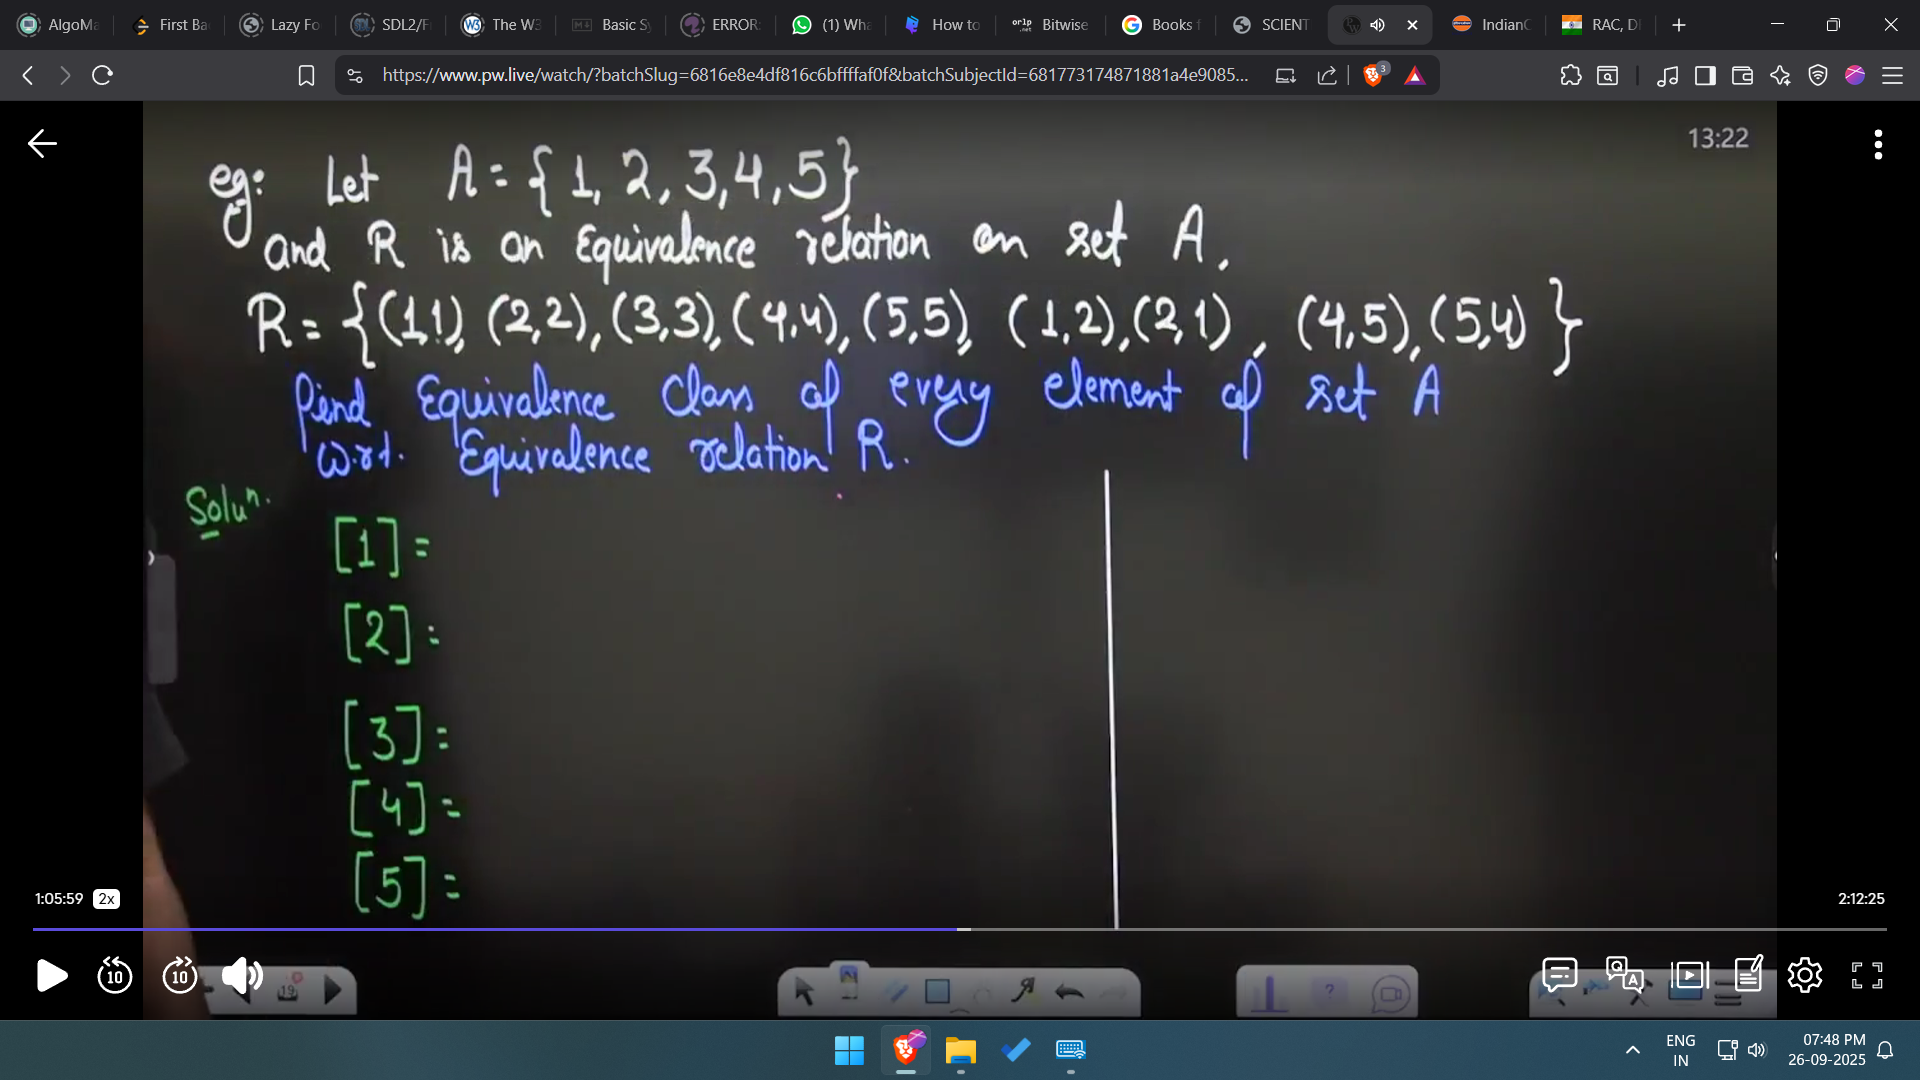 AlgoMa
First Ba
Lazy Fo
SDL2/F
The W3
Basic Sy
ERROR:
(1) Wha
How to
Bitwise
Books f
SCIENT
IndianC
RAC, D
https://www.pw.live/watch/?batchSlug=6816e8e4df816c6bffffaf0f&batchSubjectId=681773174871881a4e9085...
3
13:22
eg: Let A = { 1, 2, 3, 4, 5 }
and R is an Equivalence relation on set A.
R = { (1,1), (2,2), (3,3), (4,4), (5,5), (1,2), (2,1), (4,5), (5,4) }
Find Equivalence Class of every element of set A
w.r.t. Equivalence relation R.
Soluⁿ.
[1] =
[2] =
[3] =
[4] =
[5] =
1:05:59 2x
2:12:25
10
10
19
ENG
IN
07:48 PM
26-09-2025